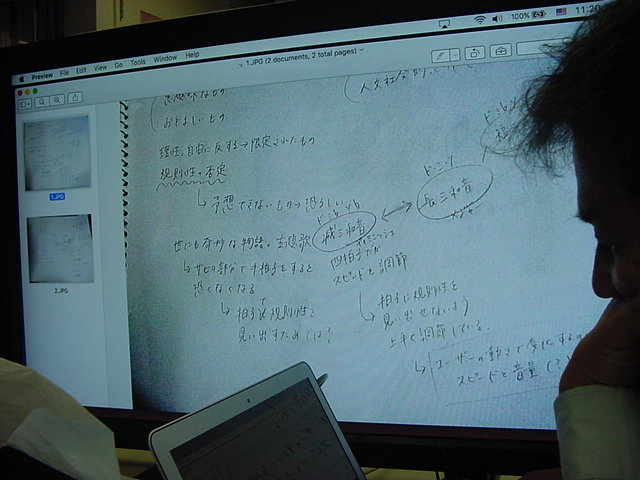 Preview File Edit View Go Tools Window Help
100%
11:20
1.JPG (2 documents, 2 total pages)
1.JPG
2.JPG
おぞましいもの
理性、自由に反する→限定されたもの
規則性の否定
↳ 予想できないもの→恐ろしい
世にも奇妙な物語の主題歌
↳ サビの部分で手拍子をすると
恐くなくなる
↳ 拍子に規則性を
見い出すためでは?
ドミ♭ソ♭
減三和音
ディミニッシュ
四拍子だが
スピードを調節
↳ 拍子に規則性を
見い出せないよう
上手く調節している。
ドミソ
長三和音
メジャー
ドミ♭ソ
↳ ユーザーの動きで変化する
スピードと音量(?)